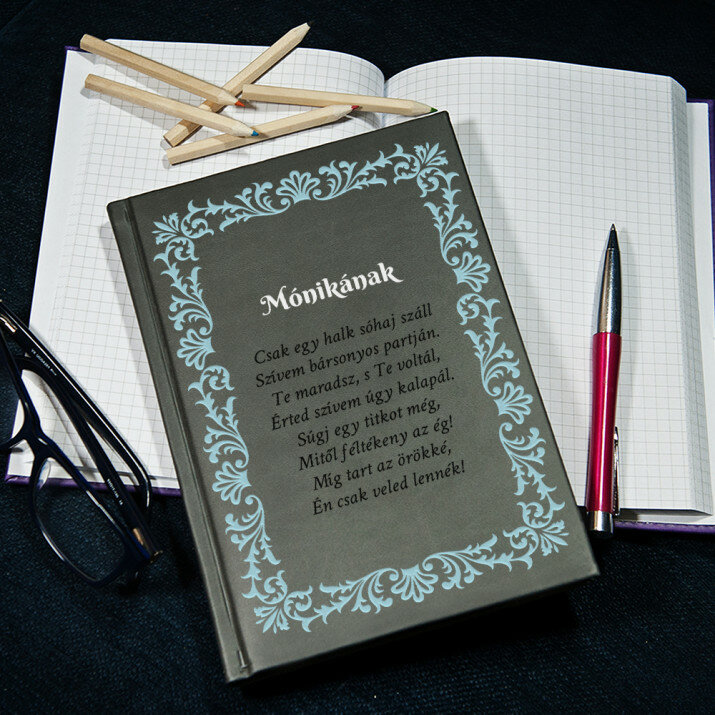 Mónikának
Csak egy halk sóhaj száll
Szívem bársonyos partján.
Te maradsz, s Te voltál,
Érted szívem úgy kalapál.
Súgj egy titkot még,
Mitől féltékeny az ég!
Míg tart az örökké,
Én csak veled lennék!